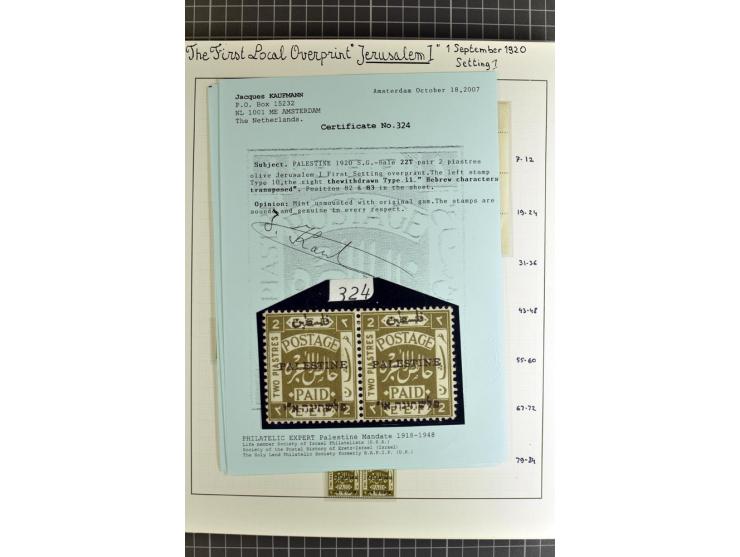 The First Local Overprint "Jerusalem I" 1 September 1920
Setting I
Jacques KAUFMANN
P.O. Box 15232
NL 1001 ME AMSTERDAM
The Netherlands.
Amsterdam October 18, 2007
Certificate No. 324
Subject. PALESTINE 1920 S.G.-Bale 22T pair 2 piastres
olive Jerusalem I First Setting overprint. The left stamp
Type 10, the right thewithdrawn Type 11." Hebrew characters
transposed". Position 82 & 83 in the sheet.
Opinion: Mint unmounted with original gum. The stamps are
sound and genuine in every respect.
J. Kauf
324
فلسطين فلسطين
2 POSTAGE ٢ 2 POSTAGE ٢
TWO PIASTRES TWO PIASTRES
PALESTINE PALESTINE
PAID PAID
E.E.F. E.E.F.
2 2
PHILATELIC EXPERT Palestine Mandate 1918-1948
Life member Society of Israel Philatelists (U.S.A.)
Society of the Postal History of Eretz-Israel (Israel)
The Holy Land Philatelic Society formerly B.A.P.I.P. (U.K.)
7-12
19-24
31-36
43-48
55-60
67-72
79-84